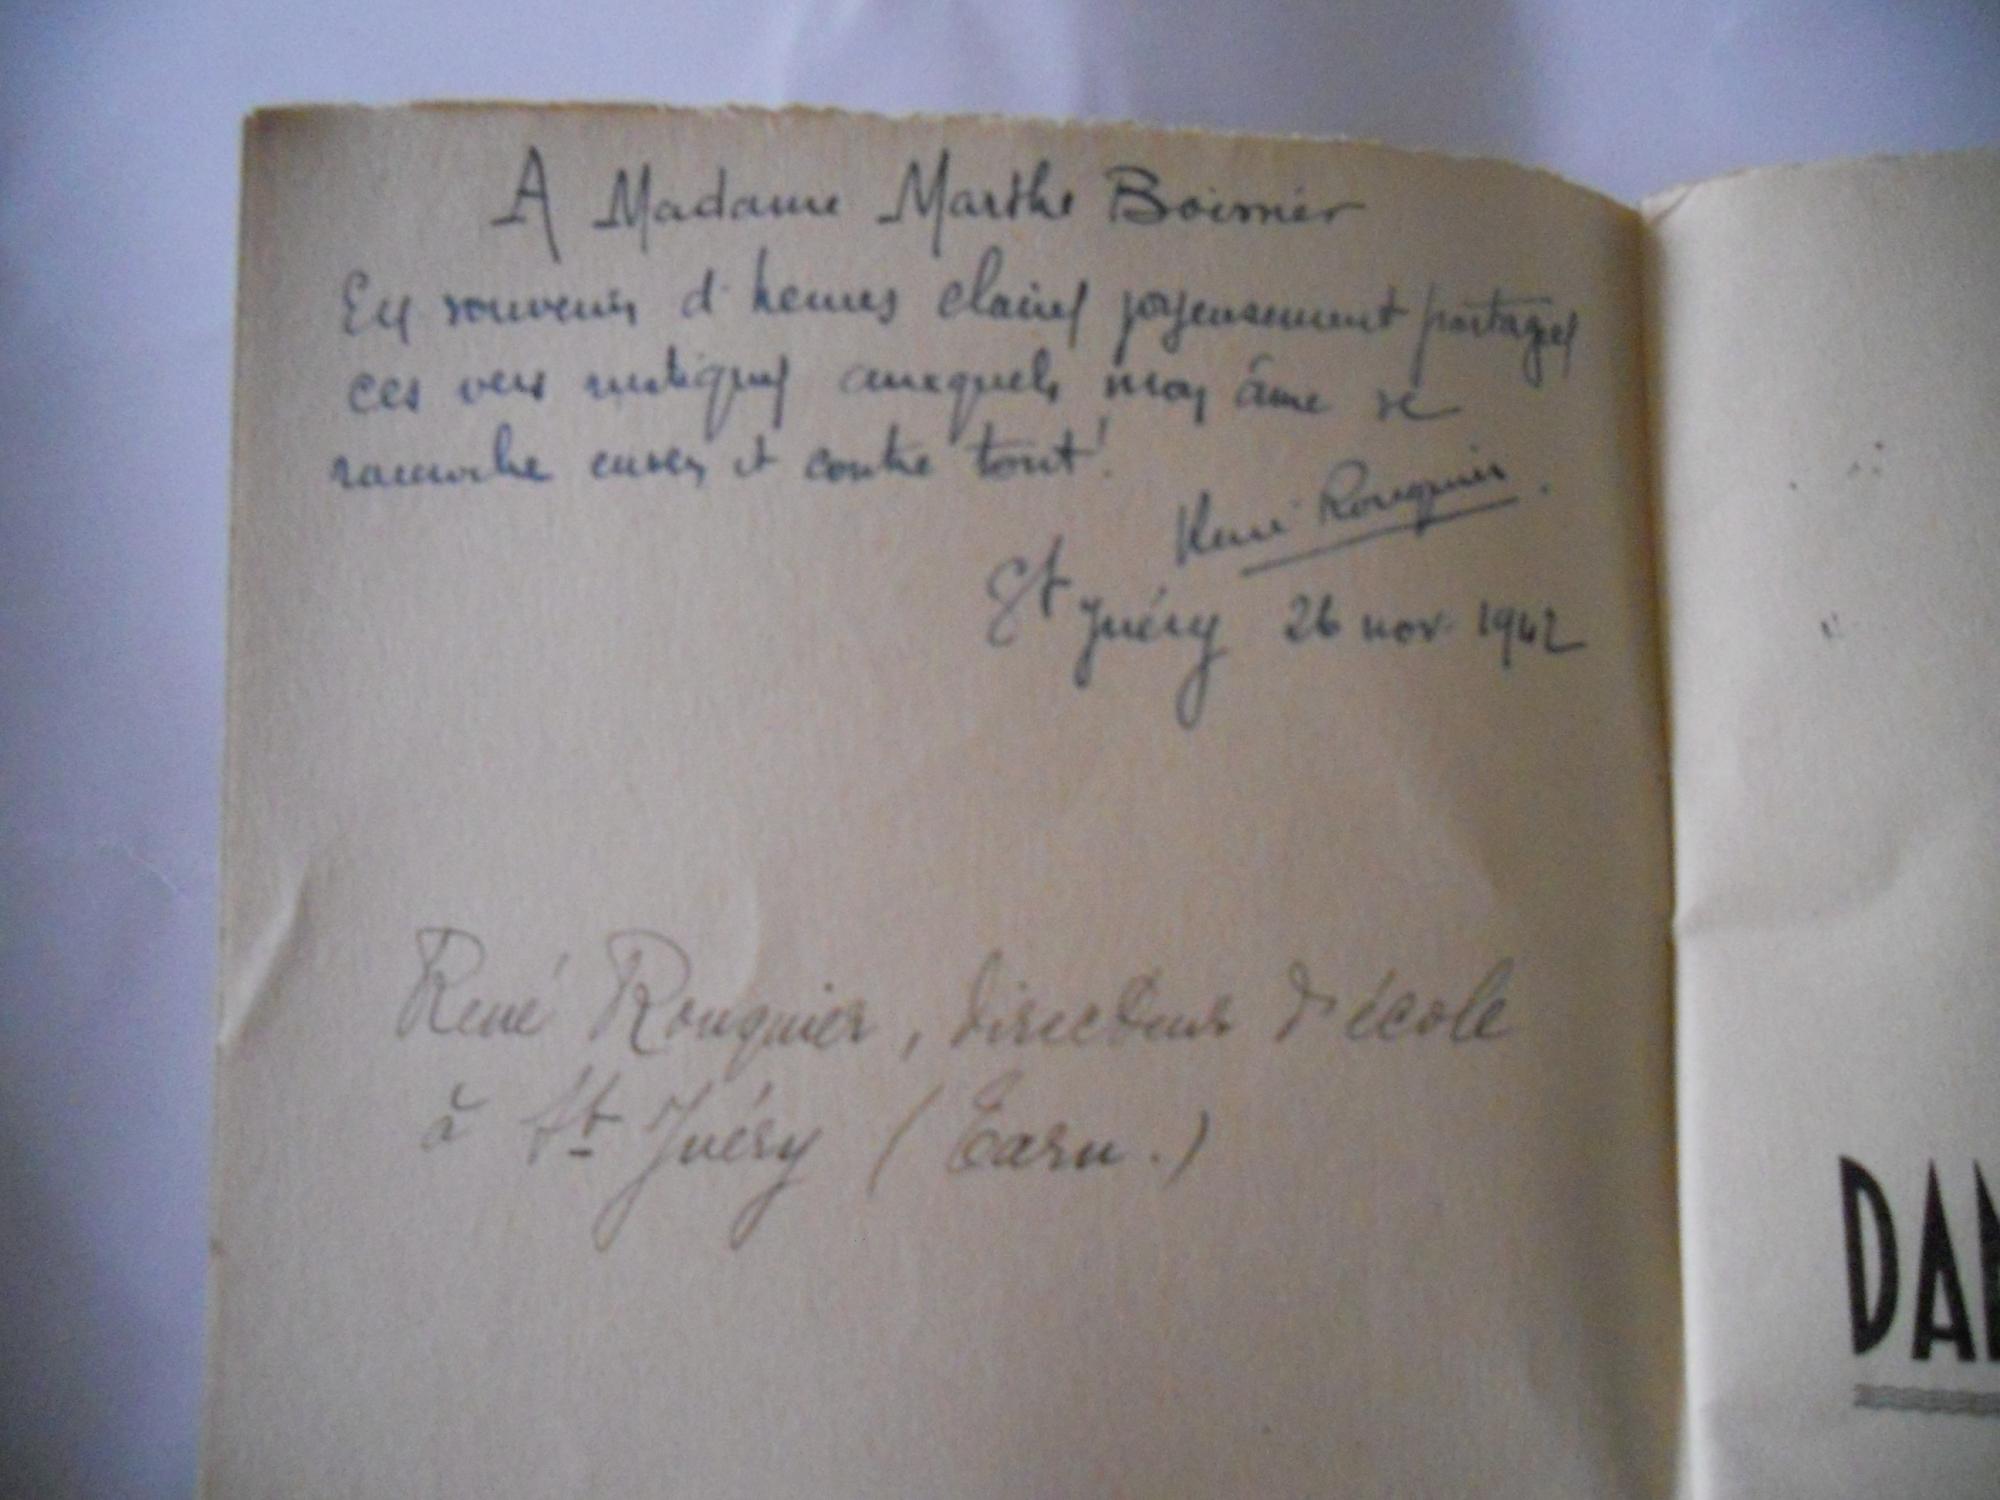 A Madame Marthe
En souvenir d'heures claires joyeusement partagées
ces vers rustiques auxquels mon âme se
raccroche envers et contre tout!
René Rouquier.
St Juéry 26 nov. 1942
René Rouquier, directeur d'école
à St Juéry (Tarn.)
DAN